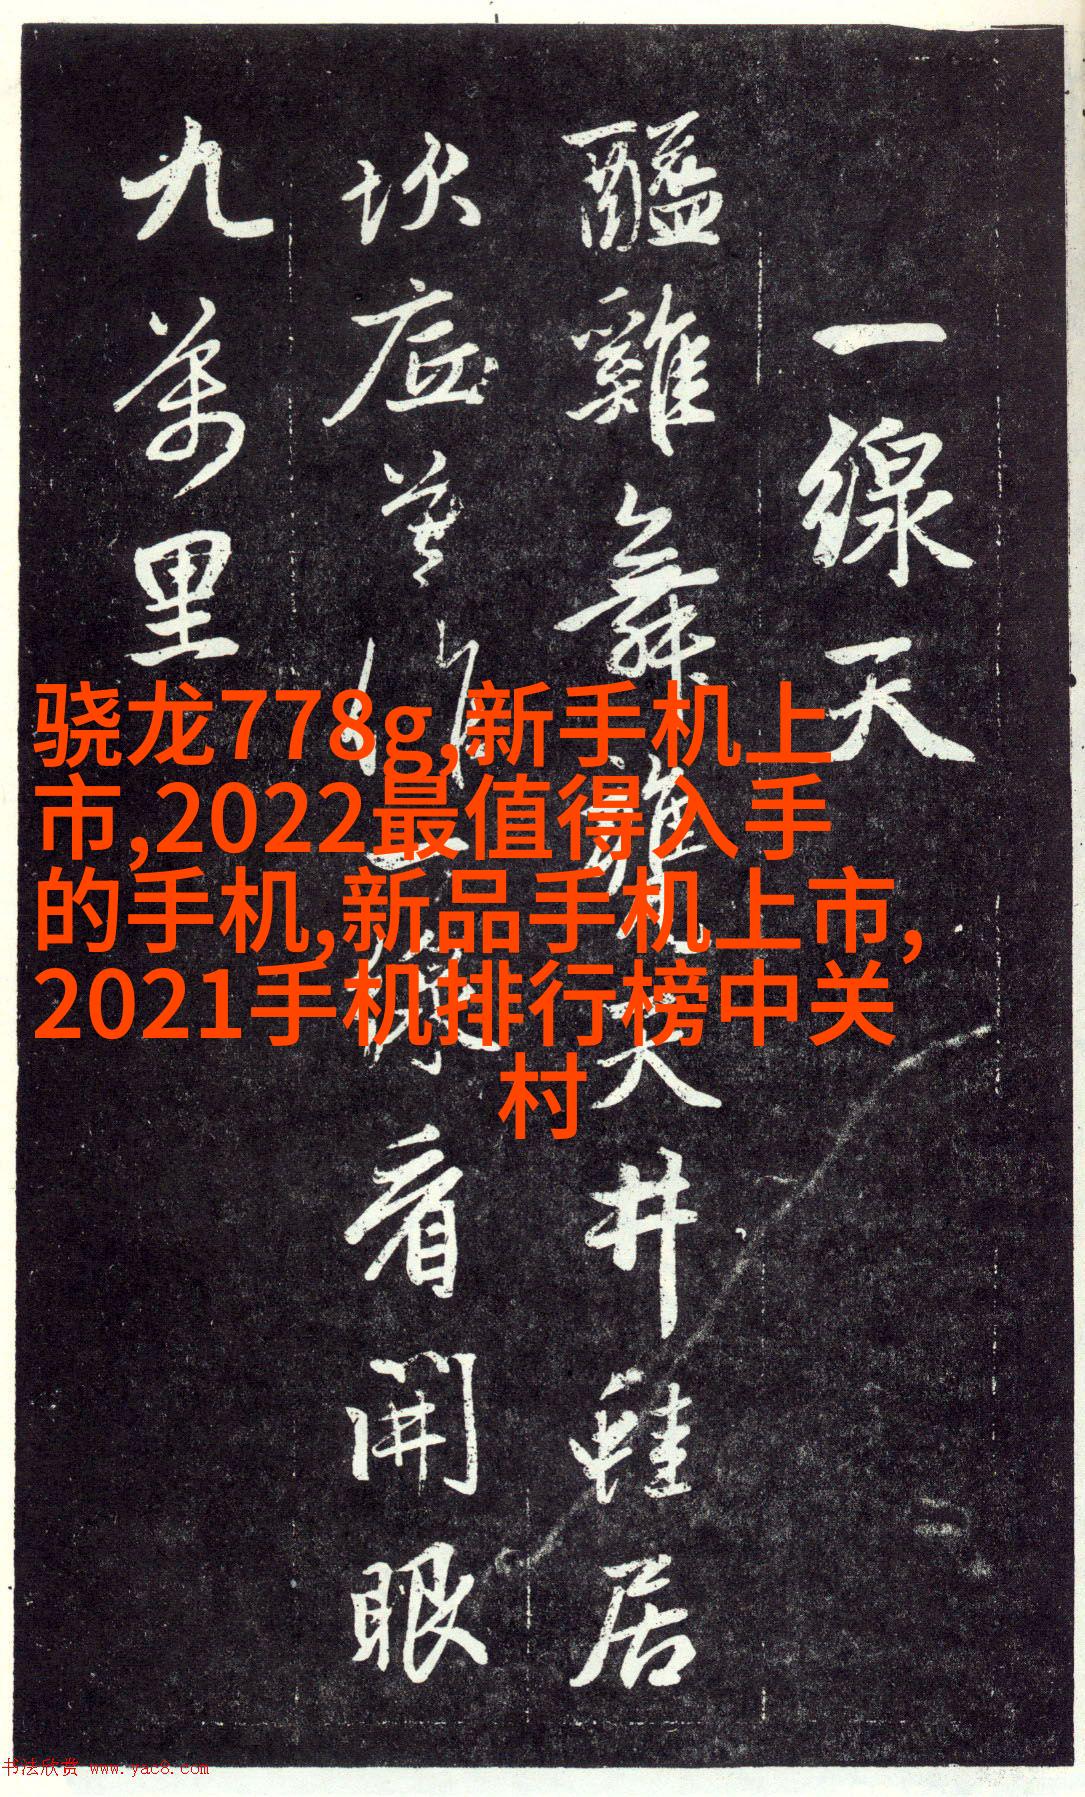 一線天
醯雞舞甕天井蛙居
坎底莫作一線看開眼
九萬里
骁龙778g,新手机上
市,2022最值得入手
的手机,新品手机上市,
2021手机排行榜中关
村
书法欣赏 www.yac8.com